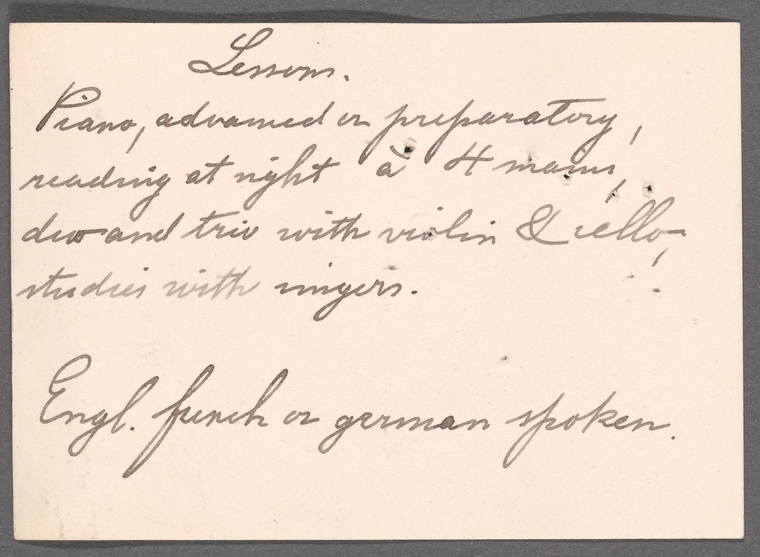 Lessons.
Piano, advanced or preparatory,
reading at sight à 4 mains,
duo and trio with violin & cello,
studies with singers.
Engl. french or german spoken.